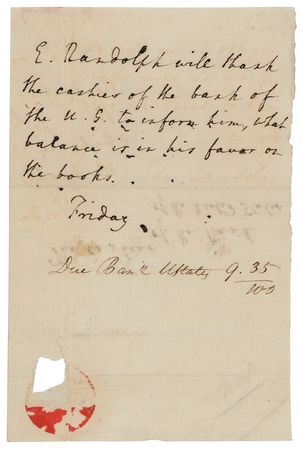 E. Randolph will thank
the cashier of the bank of
the U. S. to inform him, what
balance is in his favor on
the books.
Friday
Due Bank UStates 9. 35/100